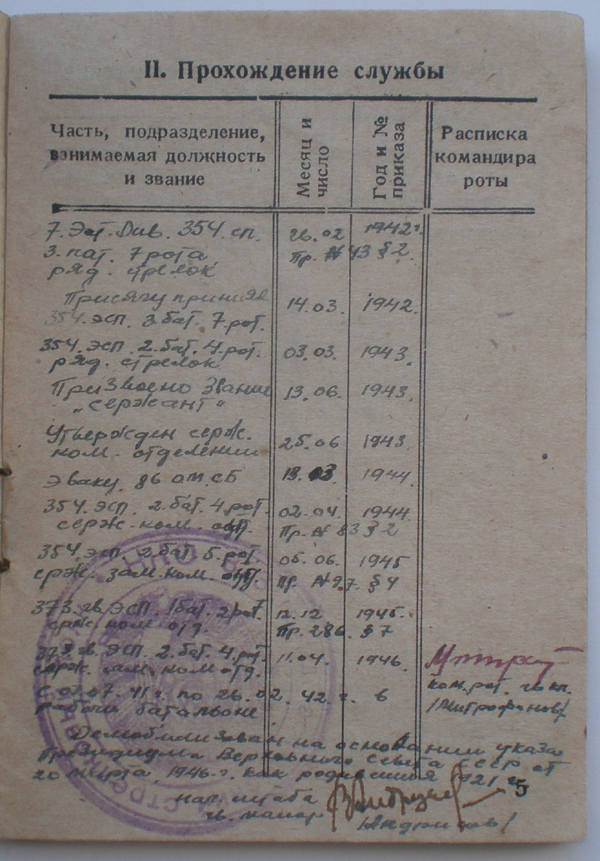 II. Прохождение службы
Часть, подразделение, занимаемая должность и звание
Месяц и число
Год и № приказа
Расписка командира роты
7. Эст. Див. 354 сп. 26.02 1942 г.
3. бат. 7 рота Пр. № 43 § 2
ряд. стрелок
Присягу принял 14.03. 1942.
354. эсп. 3 бат. 7. рот.
354. эсп. 2. бат. 4. рот. 03.03. 1943.
ряд. стрелок
Присвоено звание 13.06. 1943.
"сержант"
Утвержден серж. 25.06 1943.
ком. отделении
Эваку. 86 от. сб 03 1944
354. эсп. 2 бат. 4. рот. 02.04. 1944
серж. ком. отд. Пр. № 83 § 2
354. эсп. 2. бат. 5. рот. 05.06. 1945
серж. зам. ком. Пр. № 97. § 4
373. гв. эсп. 1 бат. 2 рот. 12.12 1945.
серж. ком. отд. Пр. 286. § 7
гв. эсп. 2. бат. 4. рот. 11.04. 1946.
серж. зам. ком. отд.
с 07.07. 41 г. по 26.02. 42. г. в ком. рот. гв. кп.
рабочи батальоне /Митрофанов/
Демобилизован на основании указа
Президиума Верховного Совета СССР от
20 марта 1946. г. как родившийся 1921 г.
нач. штаба
гв. майор
5